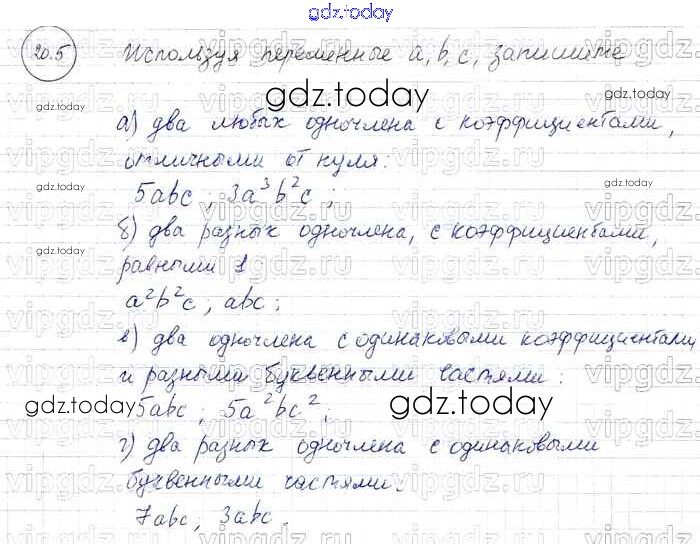 gdz.today
20.5 Используя переменные a, b, c, запишите
gdz.today
а) два любых одночлена с коэффициентами,
отличными от нуля:
5abc ; 3a³b²c ;
б) два разных одночлена, с коэффициентами,
равными 1
a²b²c ; abc ;
в) два одночлена с одинаковыми коэффициентами
и разными буквенными частями:
5abc ; 5a²bc² ;
gdz.today gdz.today
г) два разных одночлена с одинаковыми
буквенными частями:
7abc, 3abc.